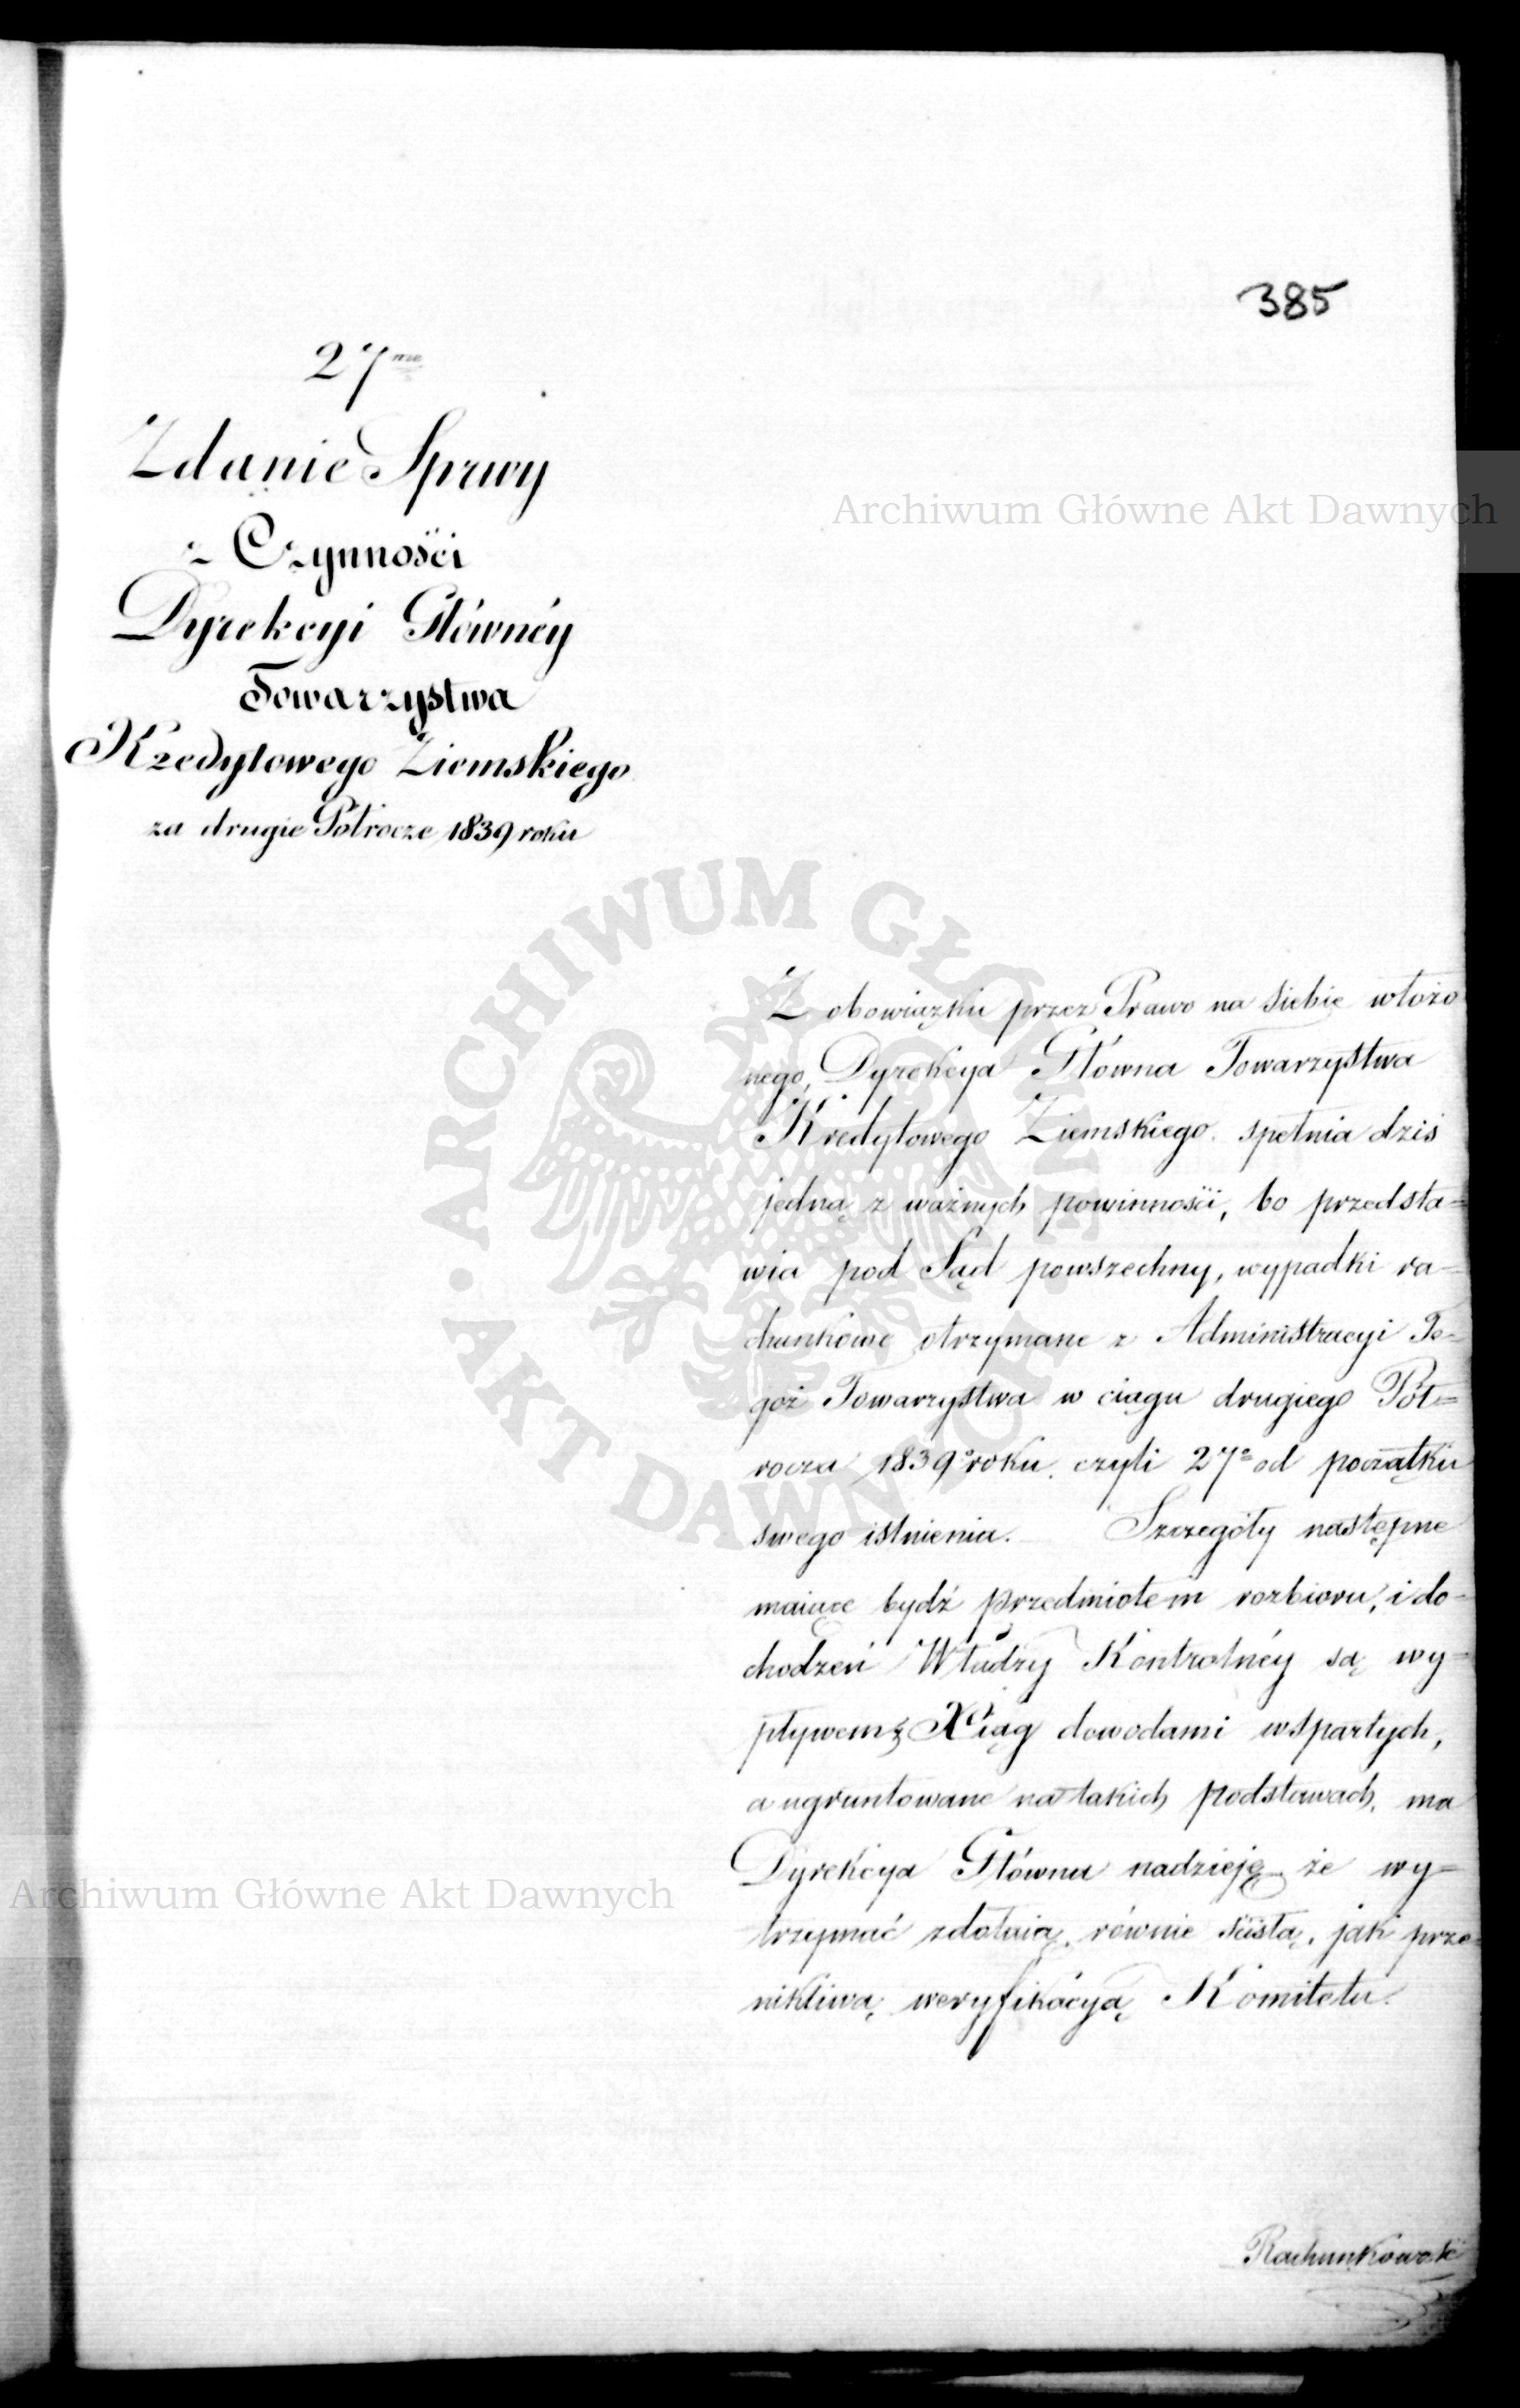 385
27me
Zdanie Sprwy
z Czynności
Dyrekcyi Głównéy
Towarzystwa
Kredytowego Ziemskiego
za drugie Półrocze 1839 roku
Z obowiązku przez Prawo na siebie włożo
nego, Dyrekcya Główna Towarzystwa
Kredytowego Ziemskiego spełnia dziś
jedną z ważnych powinności, bo przedsta=
wia pod Sąd powszechny, wypadki ra-
chunkowe otrzymane z Administracyi Te-
goż Towarzystwa w ciągu drugiego Pół=
rocza 1839o roku czyli 27o od początku
swego istnienia. Szczegóły następne
maiące bydź przedmiotem rozbioru, i do-
chodzeń Władzy Kontrolnéy są wy=
pływem z Xiąg dowodami wspartych,
a ugruntowane na takich podstawach, ma
Dyrekcya Główna nadzieję że wy=
trzymać zdołaią, równie ścisłą, jak prze
nikliwą weryfikacyą Komitetu.
Rachunkowość
Archiwum Główne Akt Dawnych
ARCHIWUM GŁÓWNE
AKT DAWNYCH
Archiwum Główne Akt Dawnych